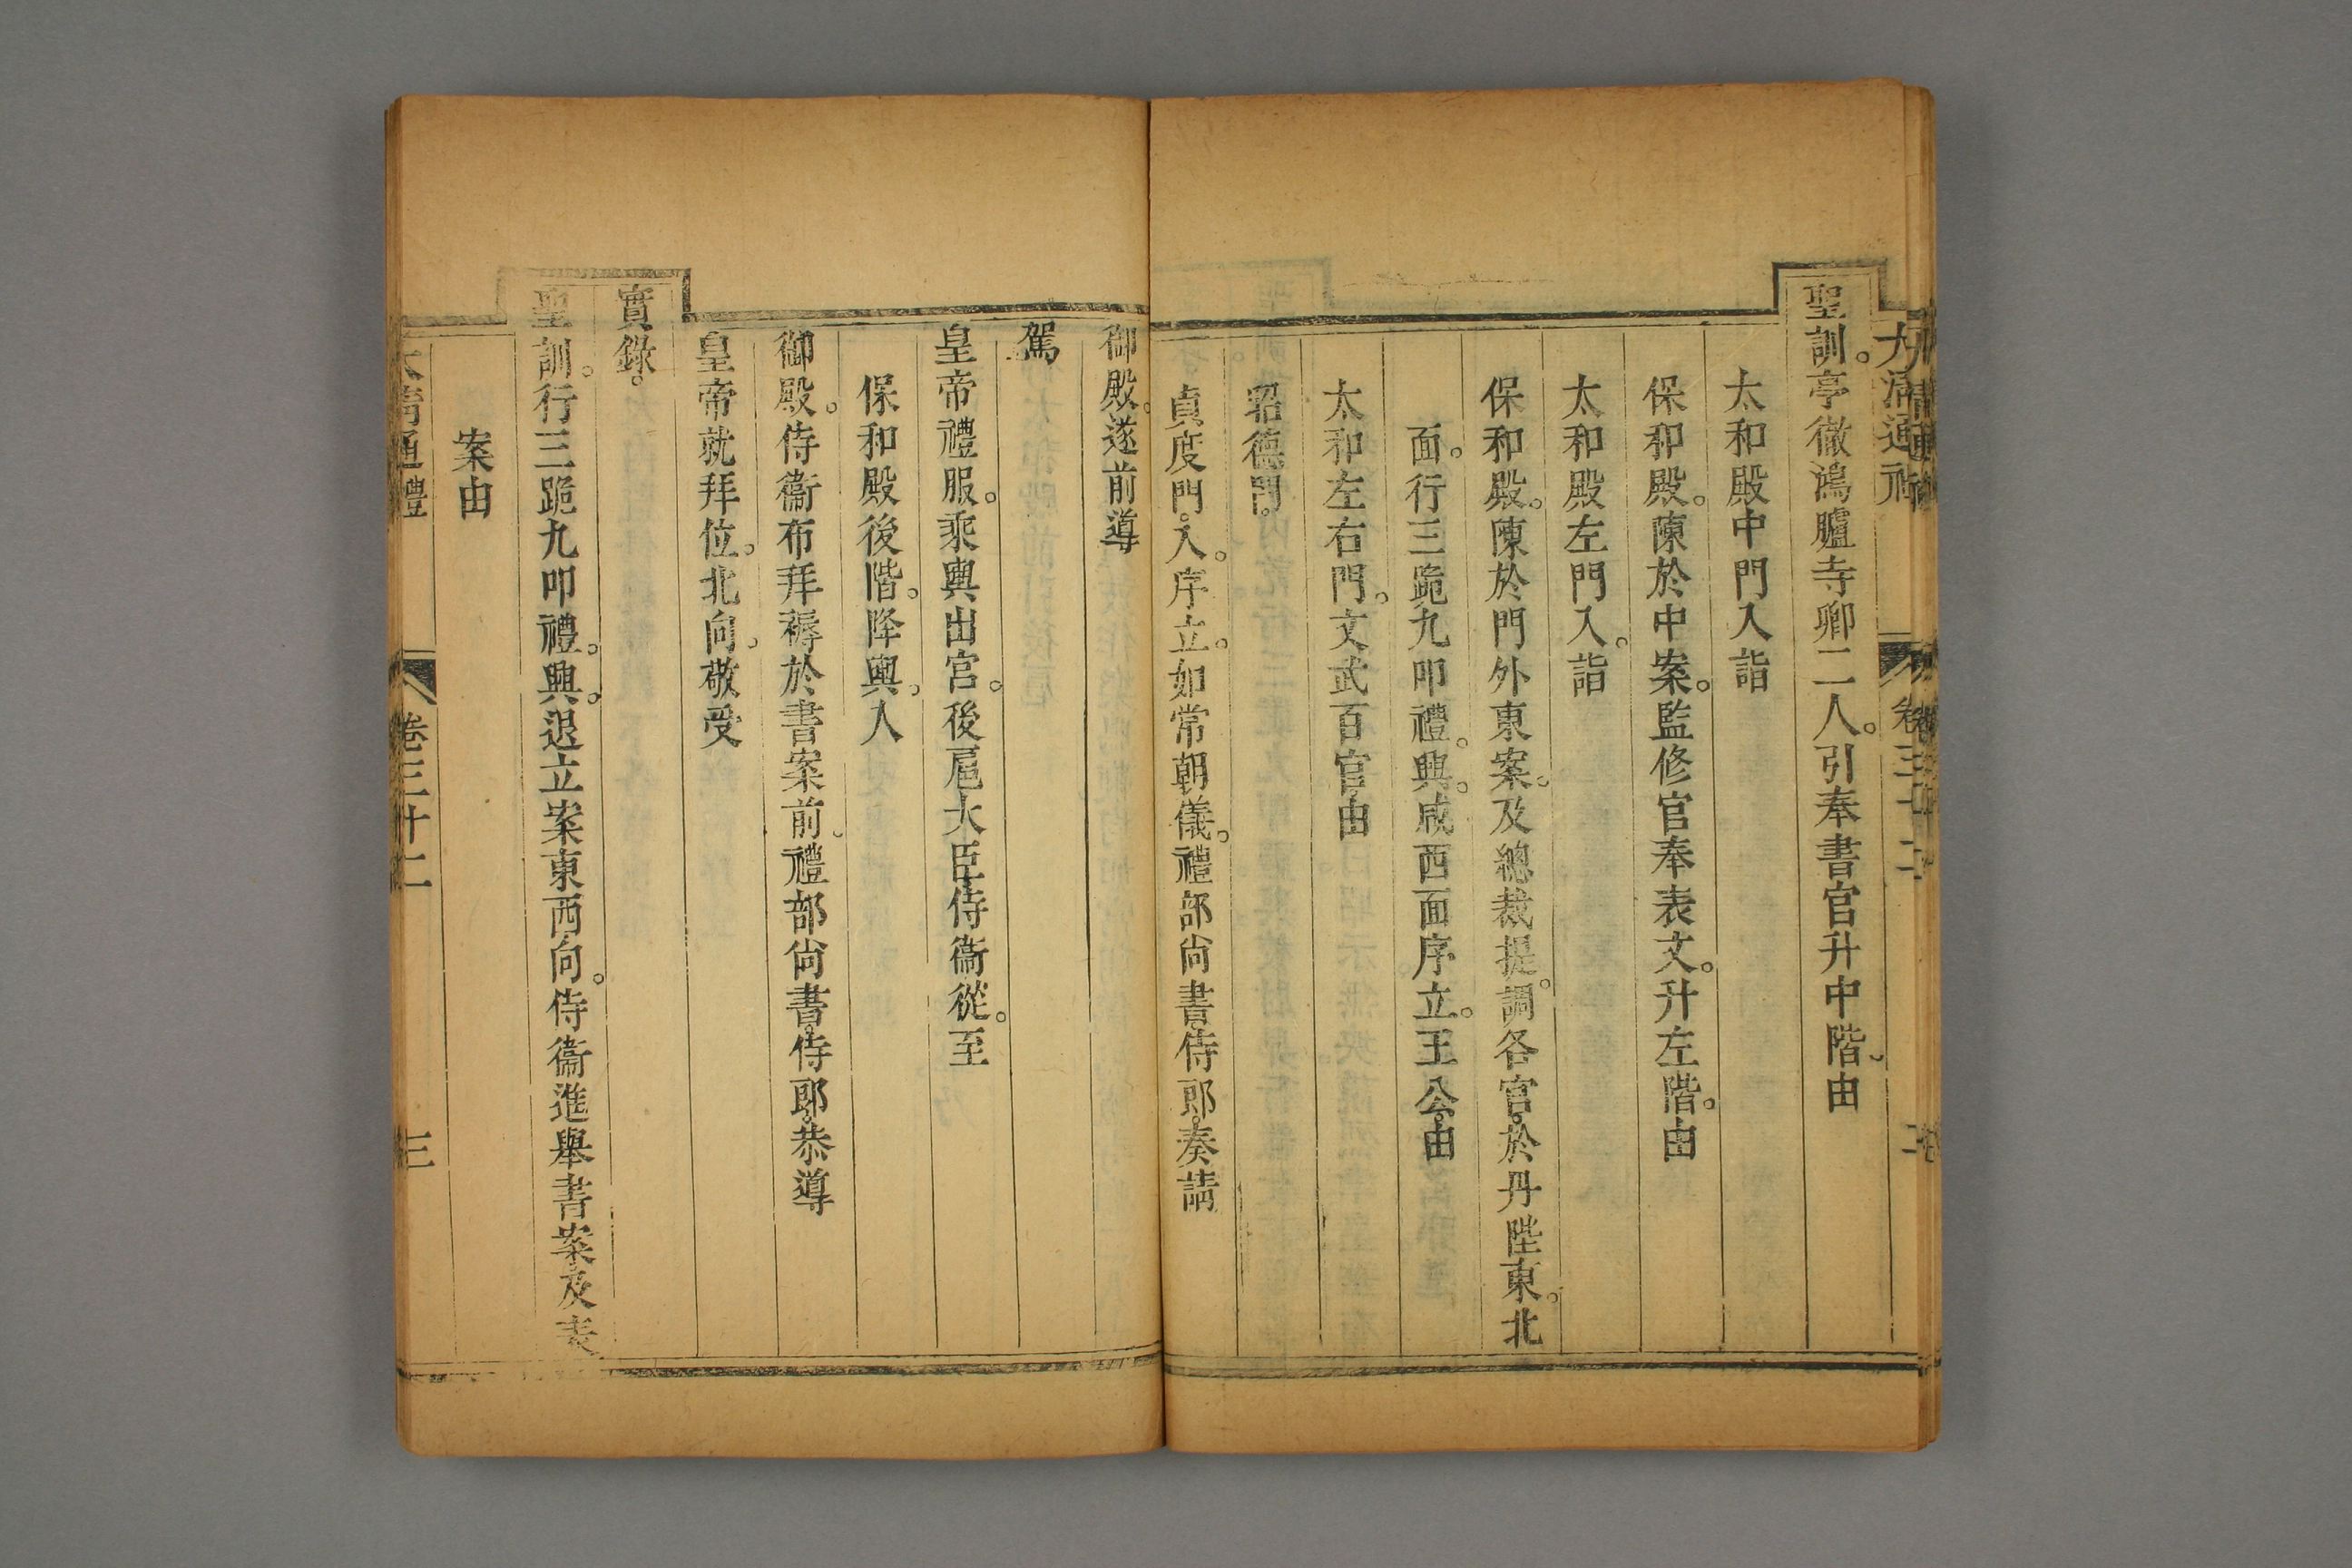 聖訓。亭徹鴻臚寺卿二人。引奉書官升中階。由
太和殿中門入詣
保和殿。陳於中案。監修官奉表文。升左階。由
太和殿左門入。詣
保和殿。陳於門外東案。及總裁提。調各官。於丹陛東。北
面。行三跪九叩禮。興。咸西面序立。王公。由
太和左右門。文武百官。由
昭德門。
貞度門。入。序立。如常朝儀。禮部尙書。侍郎。奏請
御殿。遂前導
駕
皇帝禮服。乘輿出宮。後扈大臣侍衞從。至
保和殿後階。降輿。入
御殿。侍衞布拜褥於書案前。禮部尙書。侍郎。恭導
皇帝就拜位。北向。敬受
實錄。
聖訓。行三跪九叩禮。興。退立案東西向。侍衞進舉書案及表
案由
大清通禮 卷三十二 三